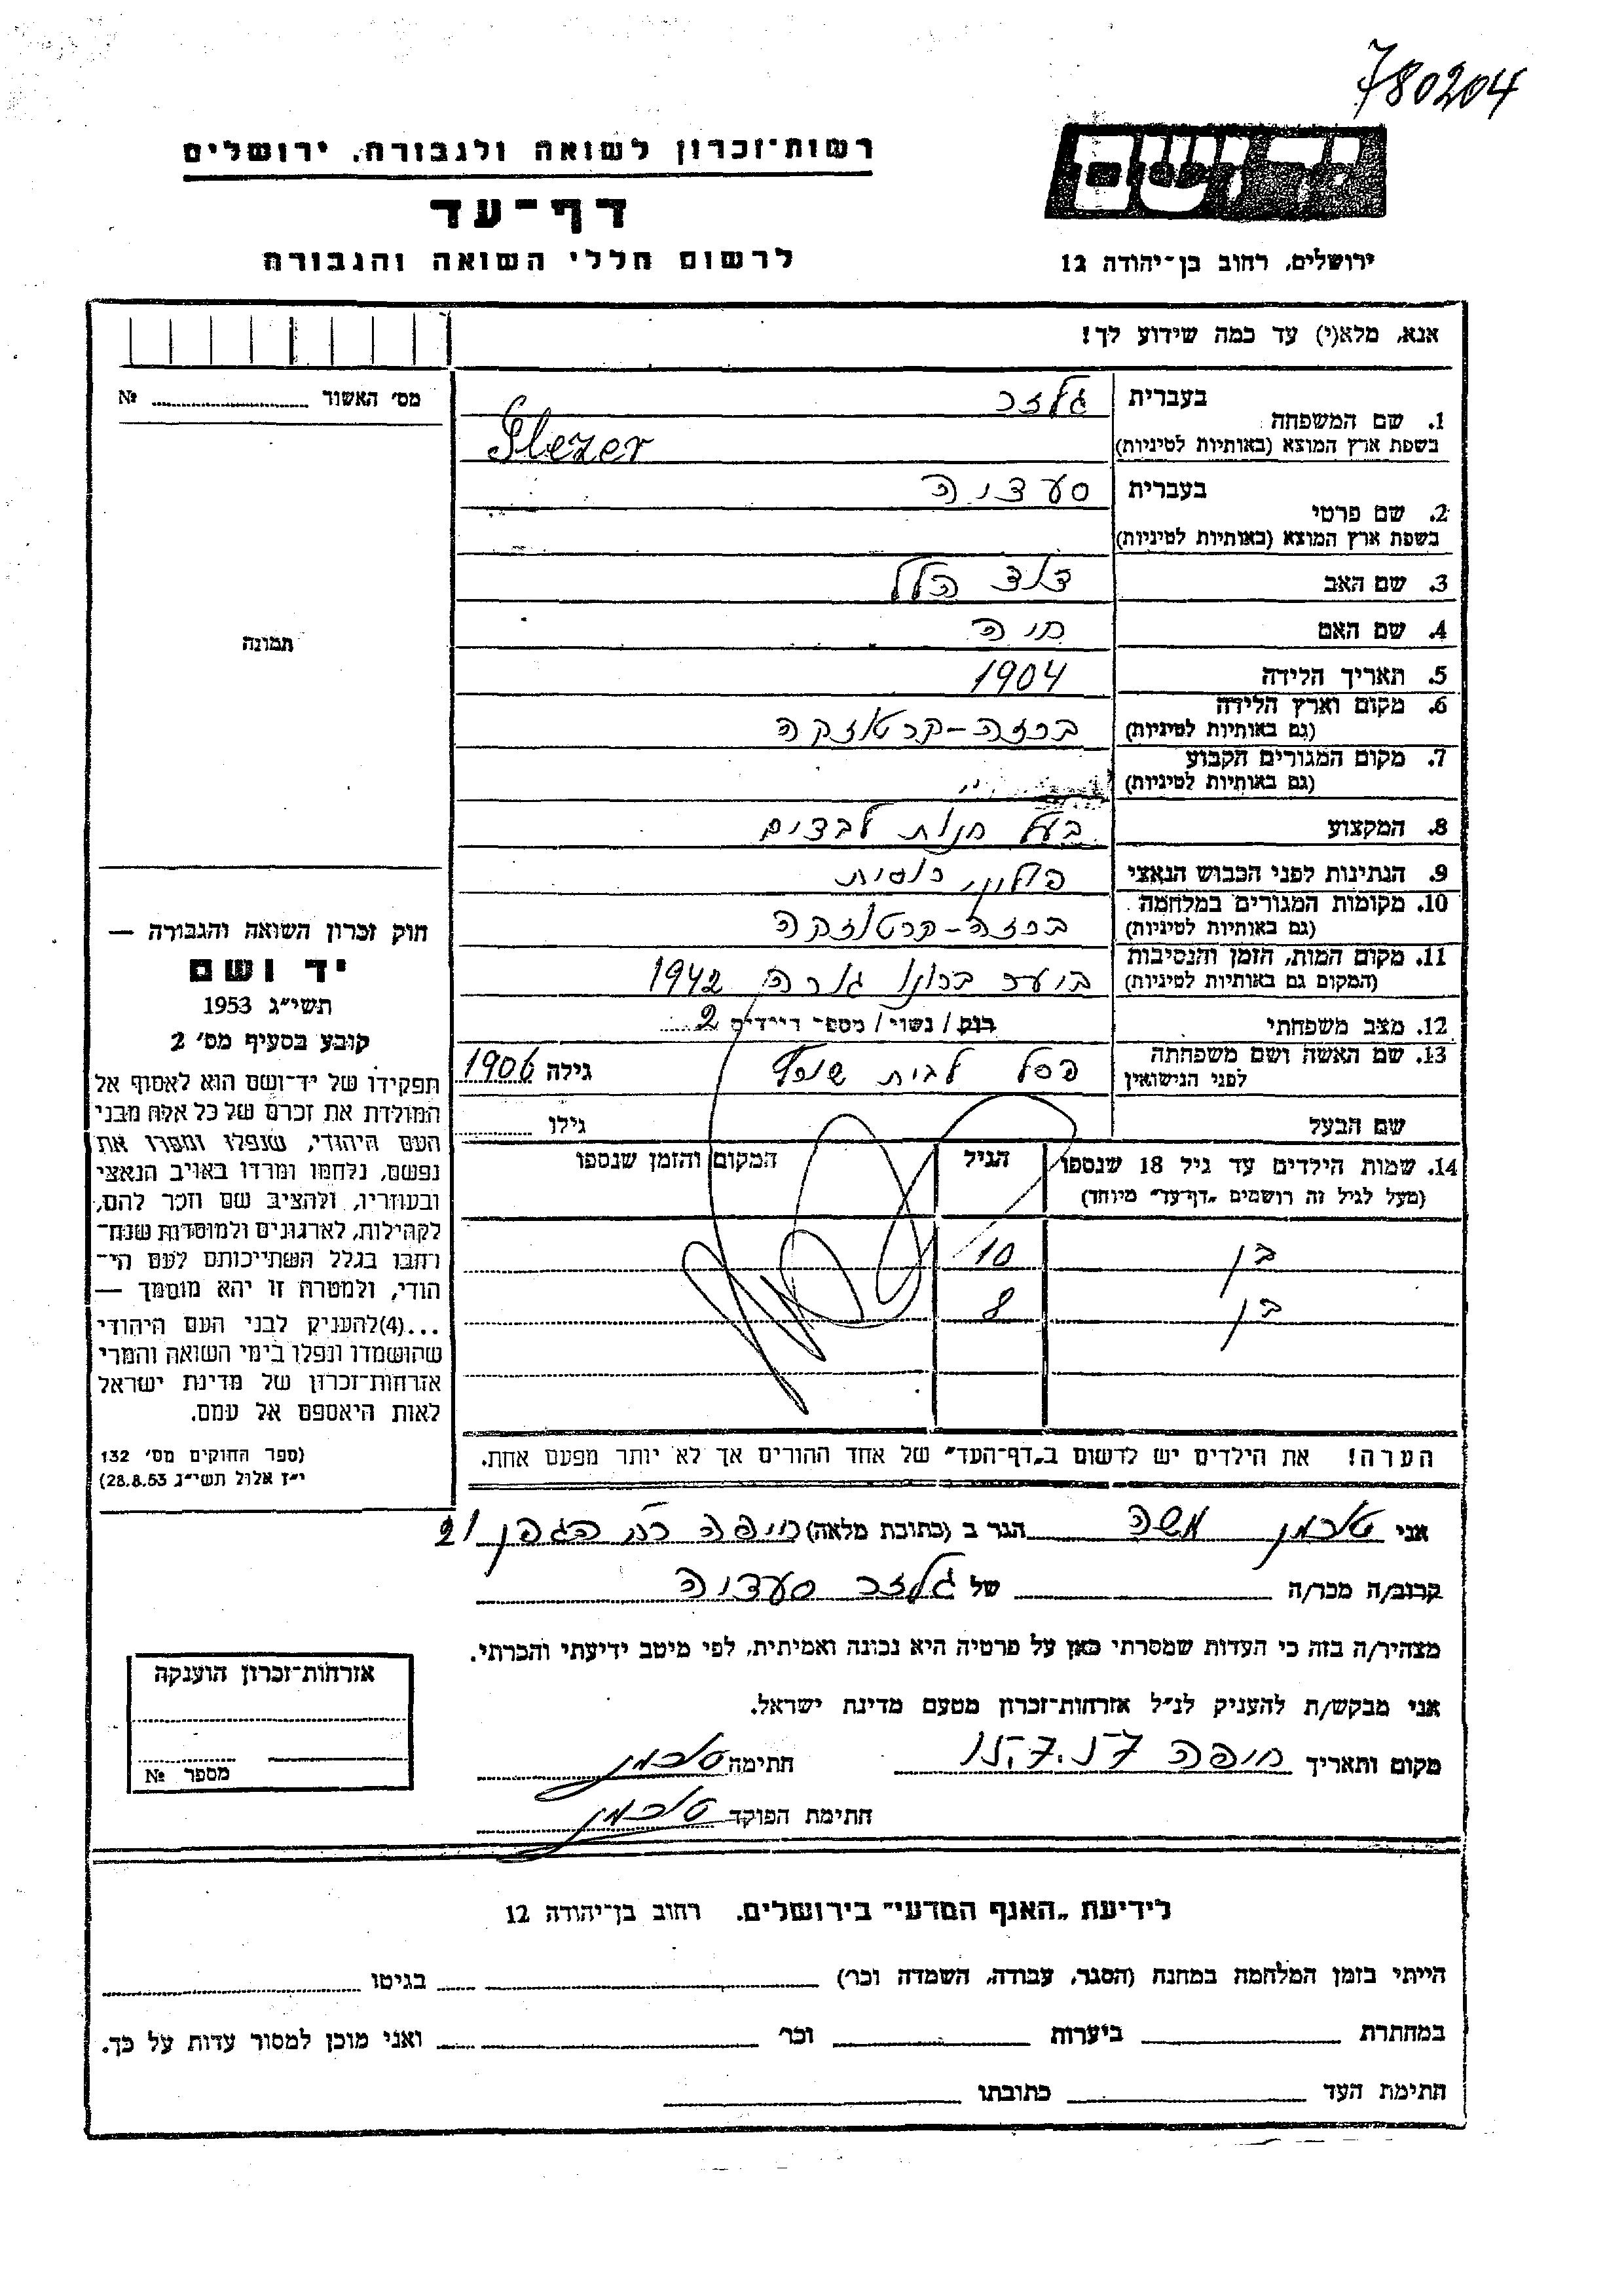 780204
רשות־זכרון לשואה ולגבורה, ירושלים
דף־עד
לרשום חללי השואה והגבורה
יד ושם
ירושלים, רחוב בן־יהודה 12
אנא, מלא(י) עד כמה שידוע לך!
מס' האשור № 
תמונה
חוק זכרון השואה והגבורה —
יד ושם
תשי״ג 1953
קובע בסעיף מס' 2
תפקידו של יד־ושם הוא לאסוף אל
המולדת את זכרם של כל אלה מבני
העם היהודי, שנפלו ומסרו את
נפשם, נלחמו ומרדו באויב הנאצי
ובעוזריו, ולהציב שם וזכר להם,
לקהילות, לארגונים ולמוסדות שנח־
רבו בגלל השתייכותם לעם הי־
הודי, ולמטרה זו יהא מוסמך —
...(4)להעניק לבני העם היהודי
שהושמדו ונפלו בימי השואה והמרי
אזרחות־זכרון של מדינת ישראל
לאות היאספם אל עמם.
(ספר החוקים מס' 132
י״ז אלול תשי״ג 28.8.53)
1. שם המשפחה בעברית גלזר
בשפת ארץ המוצא (באותיות לטיניות) Glezer
2. שם פרטי בעברית סעדיה
בשפת ארץ המוצא (באותיות לטיניות)
3. שם האב דוד הלל
4. שם האם חיה
5. תאריך הלידה 1904
6. מקום וארץ הלידה ברזה-קרטוזקה
(גם באותיות לטיניות)
7. מקום המגורים הקבוע
(גם באותיות לטיניות)
8. המקצוע בעל חנות לבדים
9. הנתינות לפני הכבוש הנאצי פולנית
10. מקומות המגורים במלחמה ברזה-קרטוזקה
(גם באותיות לטיניות)
11. מקום המות, הזמן והנסיבות ברונו גורה 1942
(המקום גם באותיות לטיניות)
12. מצב משפחתי רוק / נשוי / מספר ילדים 2
13. שם האשה ושם משפחתה לפני הנישואין פסל לבית גילה 1906
שם הבעל גילו
14. שמות הילדים עד גיל 18 שנספו הגיל המקום והזמן שנספו
(מעל לגיל זה רושמים „דף־עד״ מיוחד)
בן 10
בן 8
הערה! את הילדים יש לרשום ב„דף־העד״ של אחד ההורים אך לא יותר מפעם אחת.
אני טוכמן משה הגר ב (כתובת מלאה) חיפה רח הגפן 21
קרוב/ה מכר/ה של גלזר סעדיה
מצהיר/ה בזה כי העדות שמסרתי כאן על פרטיה היא נכונה ואמיתית, לפי מיטב ידיעתי והכרתי.
אני מבקש/ת להעניק לנ״ל אזרחות־זכרון מטעם מדינת ישראל.
מקום ותאריך חיפה חתימה טוכמן
חתימת הפוקד טוכמן
אזרחות־זכרון הוענקה
מספר №
לידיעת „האגף המדעי״ בירושלים, רחוב בן־יהודה 12
הייתי בזמן המלחמה במחנה (הסגר, עבודה, השמדה וכר') בגיטו
במחתרת ביערות וכר' ואני מוכן למסור עדות על כך.
חתימת העד כתובתו